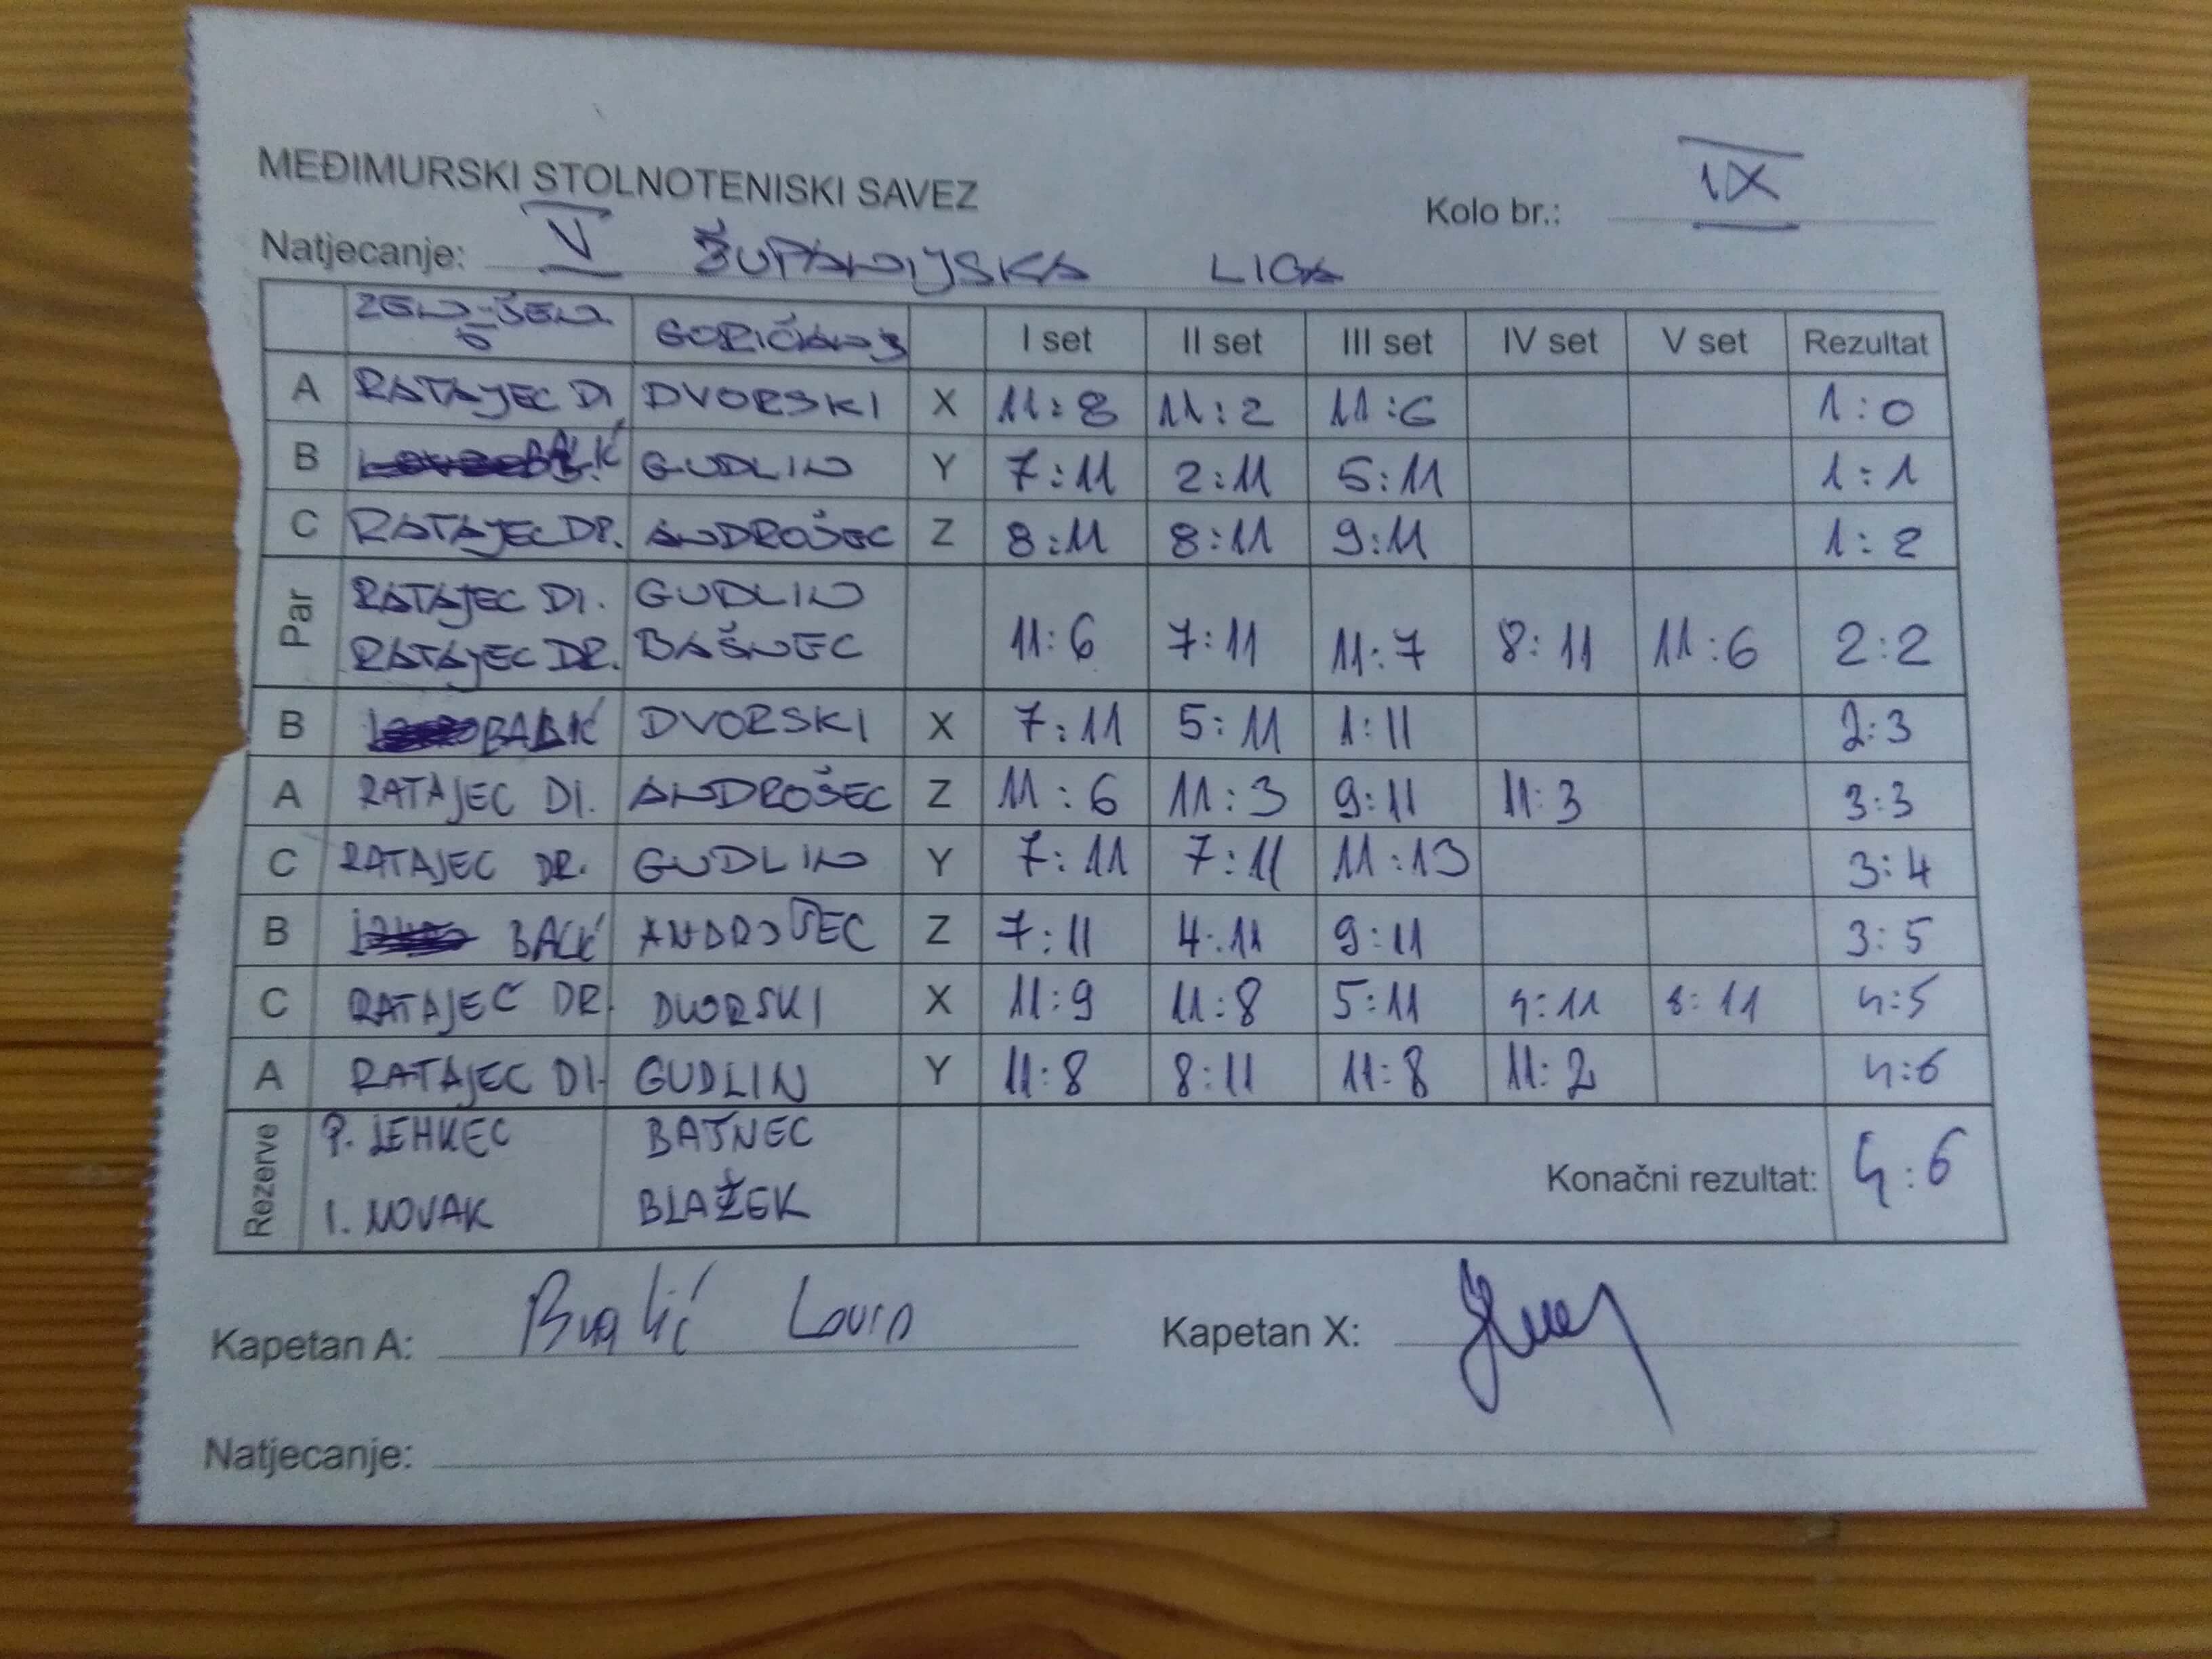 MEĐIMURSKI STOLNOTENISKI SAVEZ
Kolo br.: IX
Natjecanje: V ŽUPANIJSKA LIGA
GORIČAN 3 I set II set III set IV set V set Rezultat
A RATAJEC DI DVORSKI X 11:8 11:2 11:6 1:0
B GUDLIN Y 7:11 2:11 5:11 1:1
C RATAJEC DR. ANDROŠEC Z 8:11 8:11 9:11 1:2
Par RATAJEC DI. GUDLIN
RATAJEC DR. BAŠNEC 11:6 7:11 11:7 8:11 11:6 2:2
B DVORSKI X 7:11 5:11 1:11 2:3
A RATAJEC DI. ANDROŠEC Z 11:6 11:3 9:11 11:3 3:3
C RATAJEC DR. GUDLIN Y 7:11 7:11 11:13 3:4
B ANDROŠEC Z 7:11 4:11 9:11 3:5
C RATAJEC DR. DVORSKI X 11:9 11:8 5:11 4:11 8:11 4:5
A RATAJEC DI. GUDLIN Y 11:8 8:11 11:8 11:2 4:6
Rezerve P. LEHKEC BAŠNEC
I. NOVAK BLAŽEK
Konačni rezultat: 4:6
Kapetan A: Kapetan X:
Natjecanje: